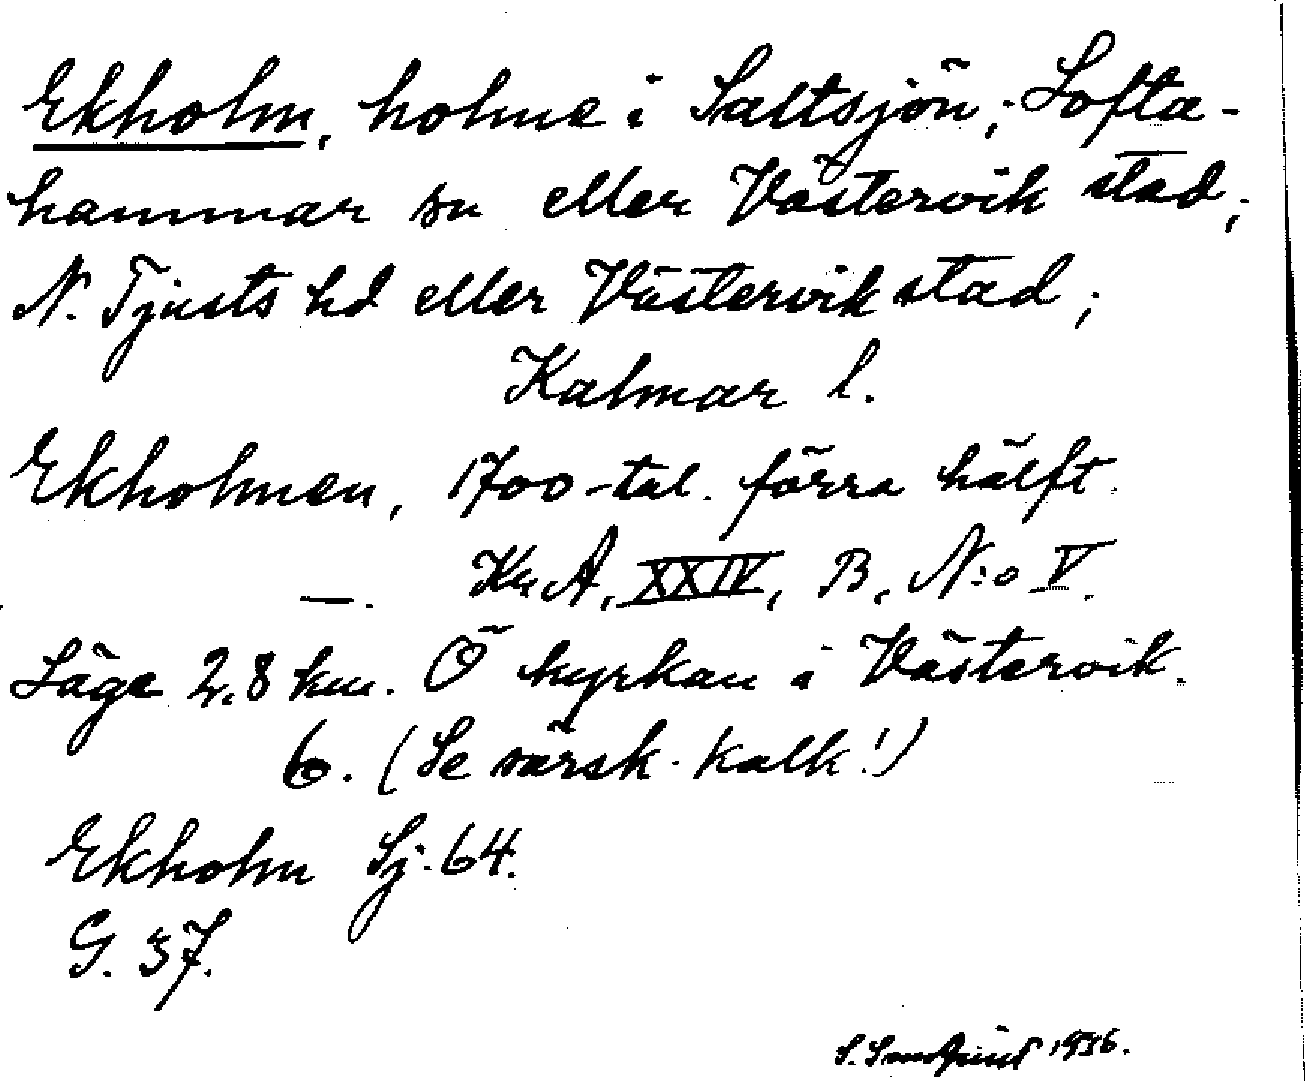 Ekholm, holme i Saltsjön; Lofta-
hammar sn eller Västervik stad;
N. Tjusts hd eller Västervik stad;
Kalmar l.
Ekholmen, 1700-tal. förra hälft.
—. KrA, XXIV, B, N:o V.
Läge 2,8 km. Ö kyrkan i Västervik.
6. (Se särsk. kalk!)
Ekholm Sj. 64.
G. 37.
S. 1936.